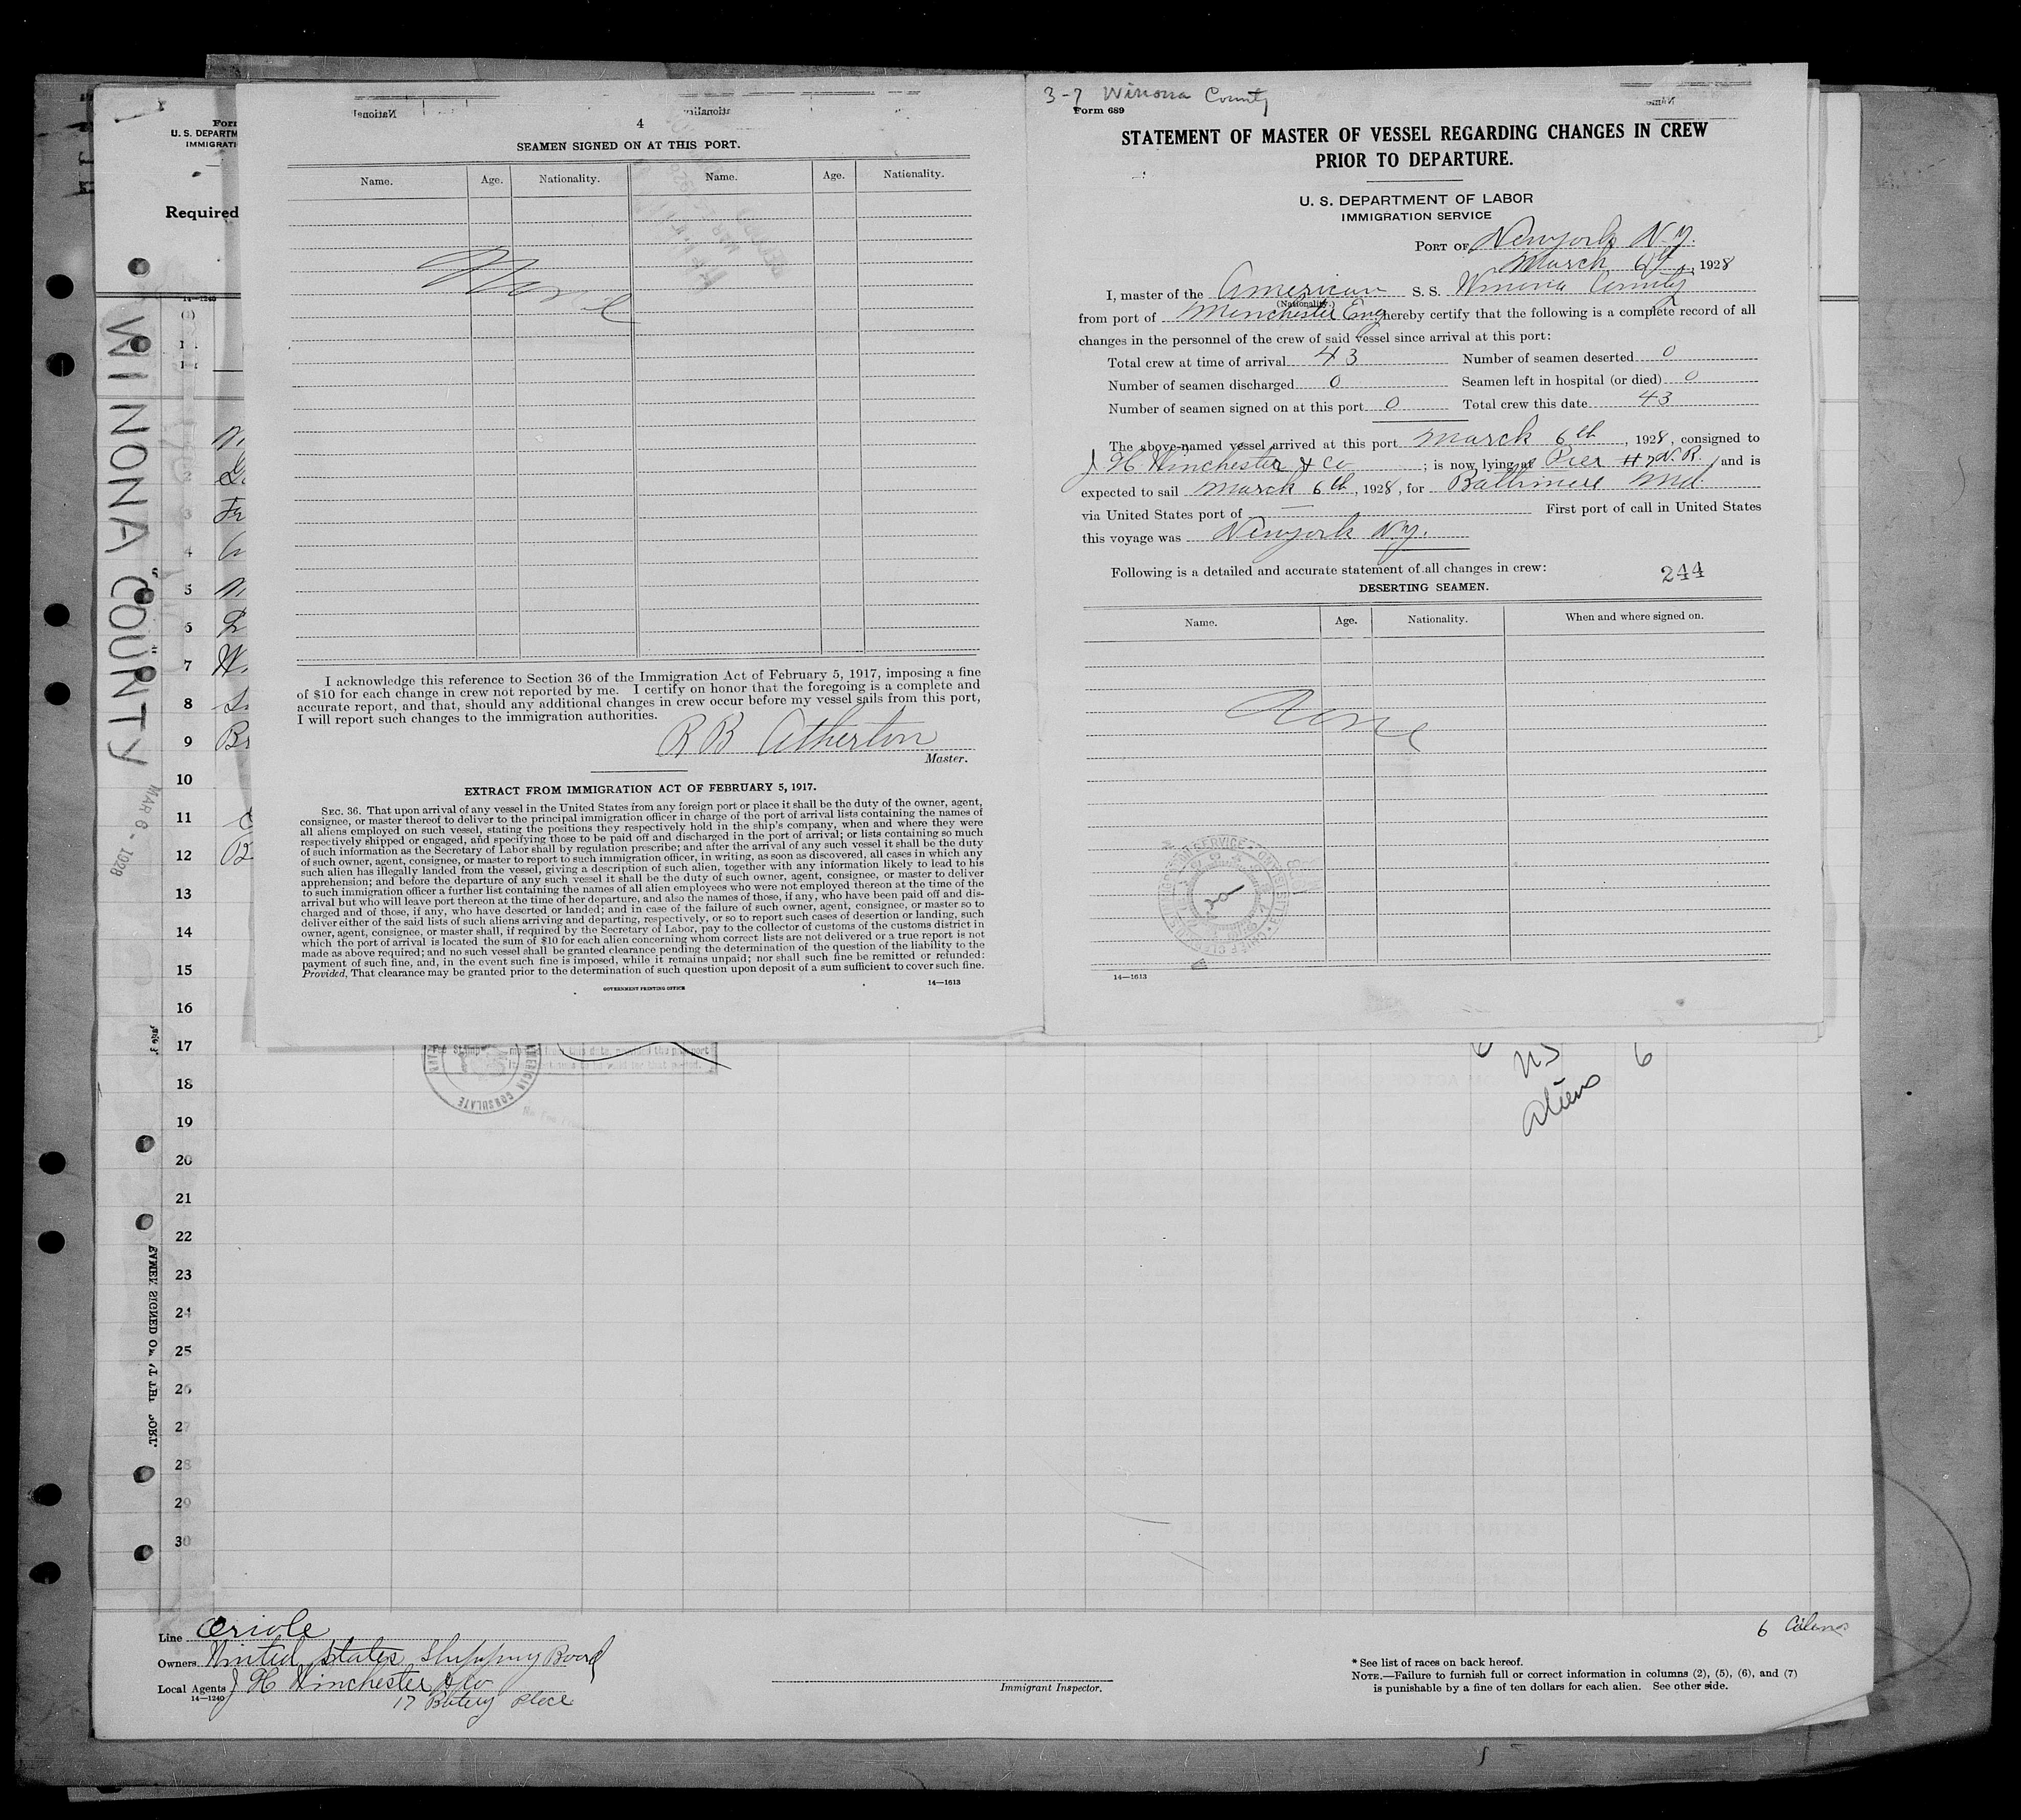 4
SEAMEN SIGNED ON AT THIS PORT.
Name. Age. Nationality. Name. Age. Nationality.
None
I acknowledge this reference to Section 36 of the Immigration Act of February 5, 1917, imposing a fine
of $10 for each change in crew not reported by me. I certify on honor that the foregoing is a complete and
accurate report, and that, should any additional changes in crew occur before my vessel sails from this port,
I will report such changes to the immigration authorities.
R B Atherton
Master.
EXTRACT FROM IMMIGRATION ACT OF FEBRUARY 5, 1917.
SEC. 36. That upon arrival of any vessel in the United States from any foreign port or place it shall be the duty of the owner, agent,
consignee, or master thereof to deliver to the principal immigration officer in charge of the port of arrival lists containing the names of
all aliens employed on such vessel, stating the positions they respectively hold in the ship's company, when and where they were
respectively shipped or engaged, and specifying those to be paid off and discharged in the port of arrival; or lists containing so much
of such information as the Secretary of Labor shall by regulation prescribe; and after the arrival of any such vessel it shall be the duty
of such owner, agent, consignee, or master to report to such immigration officer, in writing, as soon as discovered, all cases in which any
such alien has illegally landed from the vessel, giving a description of such alien, together with any information likely to lead to his
apprehension; and before the departure of any such vessel it shall be the duty of such owner, agent, consignee, or master to deliver
to such immigration officer a further list containing the names of all alien employees who were not employed thereon at the time of the
arrival but who will leave port thereon at the time of her departure, and also the names of those, if any, who have been paid off and dis-
charged and of those, if any, who have deserted or landed; and in case of the failure of such owner, agent, consignee, or master so to
deliver either of the said lists of such aliens arriving and departing, respectively, or so to report such cases of desertion or landing, such
owner, agent, consignee, or master shall, if required by the Secretary of Labor, pay to the collector of customs of the customs district in
which the port of arrival is located the sum of $10 for each alien concerning whom correct lists are not delivered or a true report is not
made as above required; and no such vessel shall be granted clearance pending the determination of the question of the liability to the
payment of such fine, and, in the event such fine is imposed, while it remains unpaid; nor shall such fine be remitted or refunded:
Provided, That clearance may be granted prior to the determination of such question upon deposit of a sum sufficient to cover such fine.
GOVERNMENT PRINTING OFFICE
14—1613
3-7 Winona County
Form 689
STATEMENT OF MASTER OF VESSEL REGARDING CHANGES IN CREW
PRIOR TO DEPARTURE.
U. S. DEPARTMENT OF LABOR
IMMIGRATION SERVICE
PORT OF Newyork N.Y.
March 6th, 1928
I, master of the American S. S. Winona County
(Nationality.)
from port of Manchester Eng hereby certify that the following is a complete record of all
changes in the personnel of the crew of said vessel since arrival at this port:
Total crew at time of arrival 43 Number of seamen deserted 0
Number of seamen discharged 0 Seamen left in hospital (or died) 0
Number of seamen signed on at this port 0 Total crew this date 43
The above-named vessel arrived at this port March 6th, 1928, consigned to
J H Winchester & Co ; is now lying at Pier #7 N.R. , and is
expected to sail March 6th, 1928, for Baltimore Md.
via United States port of — First port of call in United States
this voyage was Newyork N.Y.
Following is a detailed and accurate statement of all changes in crew:
244
DESERTING SEAMEN.
Name. Age. Nationality. When and where signed on.
None
14—1613
U. S. DEPARTM
IMMIGRATI
Required
14—1240
WINONA COUNTY
MAR 6 - 1928
2
3
4
5
6
7
8
9
10
11
12
13
14
15
16
17
18
19
20
21
22
23
24
25
26
27
28
29
30
AMERICAN CONSULATE
US 6
Aliens
6 Aliens
Line Oriole
Owners United States Shipping Board
Local Agents J H Winchester & Co
14—1240
17 Battery Place
Immigrant Inspector.
* See list of races on back hereof.
NOTE.—Failure to furnish full or correct information in columns (2), (5), (6), and (7)
is punishable by a fine of ten dollars for each alien. See other side.